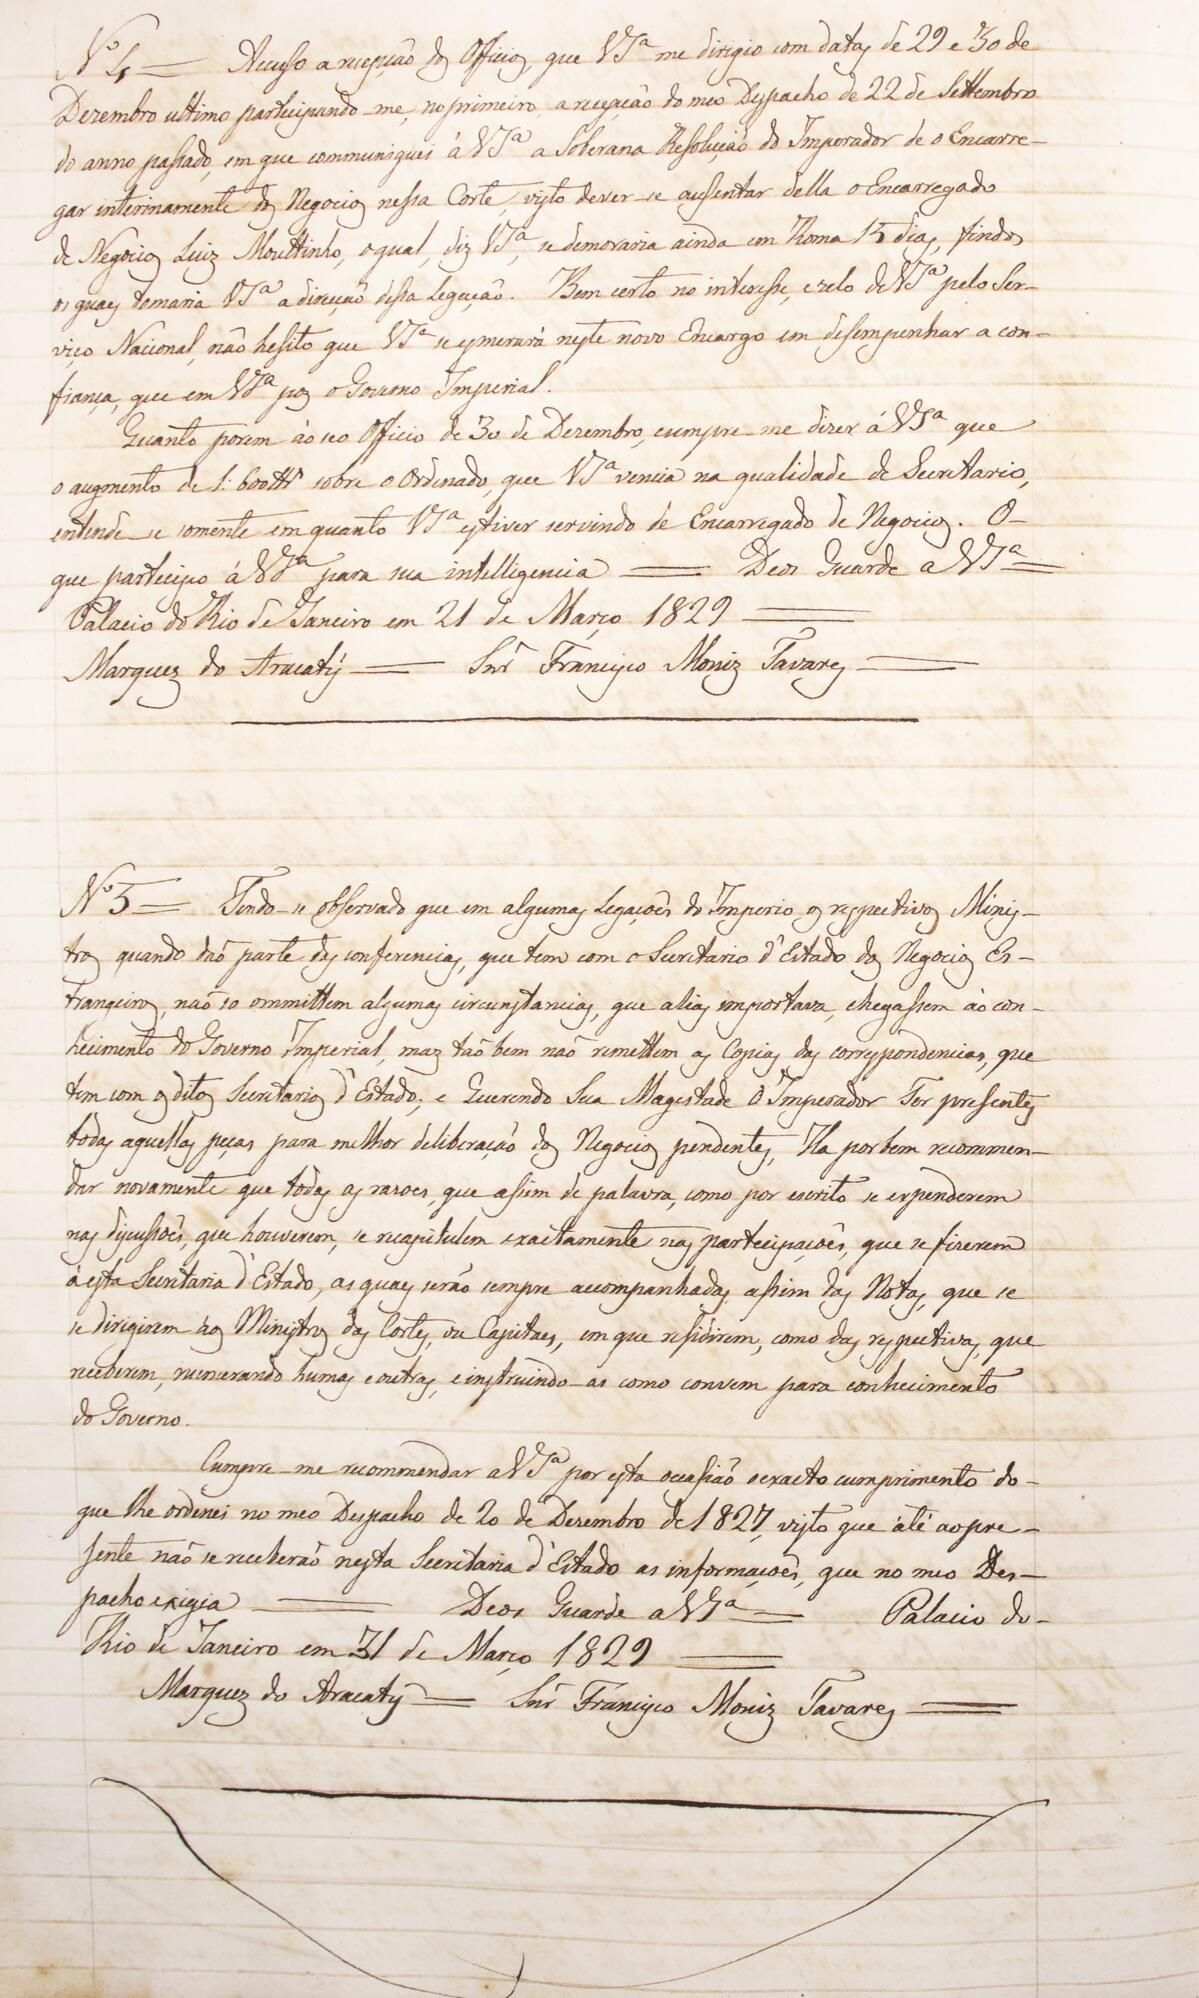 Nº 4 = Accuso a recepção dos Officios, que VSª me dirigio com datas de 29 e 30 de
Dezembro ultimo participando-me, no primeiro, a recepção do meo Despacho de 22 de Settembro
do anno passado, em que communiquei á VSª a Soberana Resolução do Imperador de o Encarre-
gar interinamente dos Negocios nessa Corte, visto dever-se ausentar della o Encarregado
de Negocios Luiz Mouttinho, o qual, diz VSª, se demoraria ainda em Roma 15 dias, findos
os quaes tomaria VSª a direcção dessa Legação. Bem certo no interesse, e zelo de VSª pelo Ser-
viço Nacional, não hesito que VSª se esmerará neste novo Encargo em desempenhar a con-
fiança, que em VSª poz o Governo Imperial.
Quanto porem ào seo Officio de 30 de Dezembro, cumpre-me dizer á VSª que
o augmento de 1:600 sobre o Ordenado, que VSª vencia na qualidade de Secretario,
entende-se somente em quanto VSª estiver servindo de Encarregado de Negocios. O-
que participo á VSª para sua intelligencia = Deos Guarde a VSª =
Palacio do Rio de Janeiro em 21 de Março 1829 =
Marquez do Aracaty = Snr Francisco Moniz Tavares =
Nº 5 = Tendo-se observado que em algumas Legações do Imperio os respectivos Minis-
tros quando dão parte das conferencias, que tem com o Secretario d'Estado dos Negocios Es-
trangeiros, não so ommittem algumas circunstancias, que alias importava, chegassem ào con-
hecimento do Governo Imperial, maz tão bem não remettem as Copias das correspondencias, que
tem com os ditos Secretarios d'Estado; e Querendo Sua Magestade O Imperador Ter presentes
todas aquellas peças para melhor deliberação dos Negocios pendentes, Ha por bem recommen-
dar novamente que todas as razoes, que assim de palavra, como por escrito se expenderem
nas discussões, que houverem, se recapitulem exactamente nas partecipações, que se fizerem
á esta Secretaria d'Estado, as quaes serão sempre accompanhadas assim das Notas, que se
se dirigirem aos Ministros das Cortes, ou Capitaes, em que residirem, como das respectivas, que
receberem, numerando humas e outras, e instruindo-as como convem para conhecimento
do Governo.
Cumpre-me recommendar a VSª por esta occasião o exacto cumprimento do-
que lhe ordenei no meo Despacho de 20 de Dezembro de 1827, visto que até ao pre-
sente não se receberão nesta Secretaria d'Estado as informações, que no meo Des-
pacho exigia = Deos Guarde a VSª = Palacio do-
Rio de Janeiro em 31 de Março 1829 =
Marquez do Aracaty = Snr Francisco Moniz Tavares =